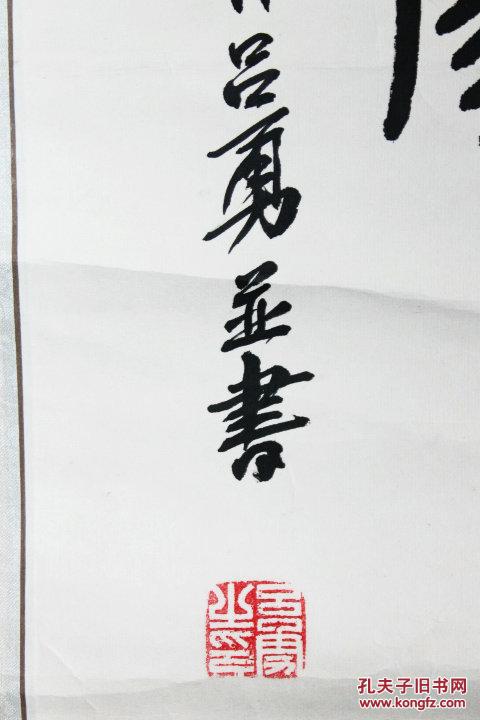 吕勇並書
吕勇之印
孔夫子旧书网
www.kongfz.com